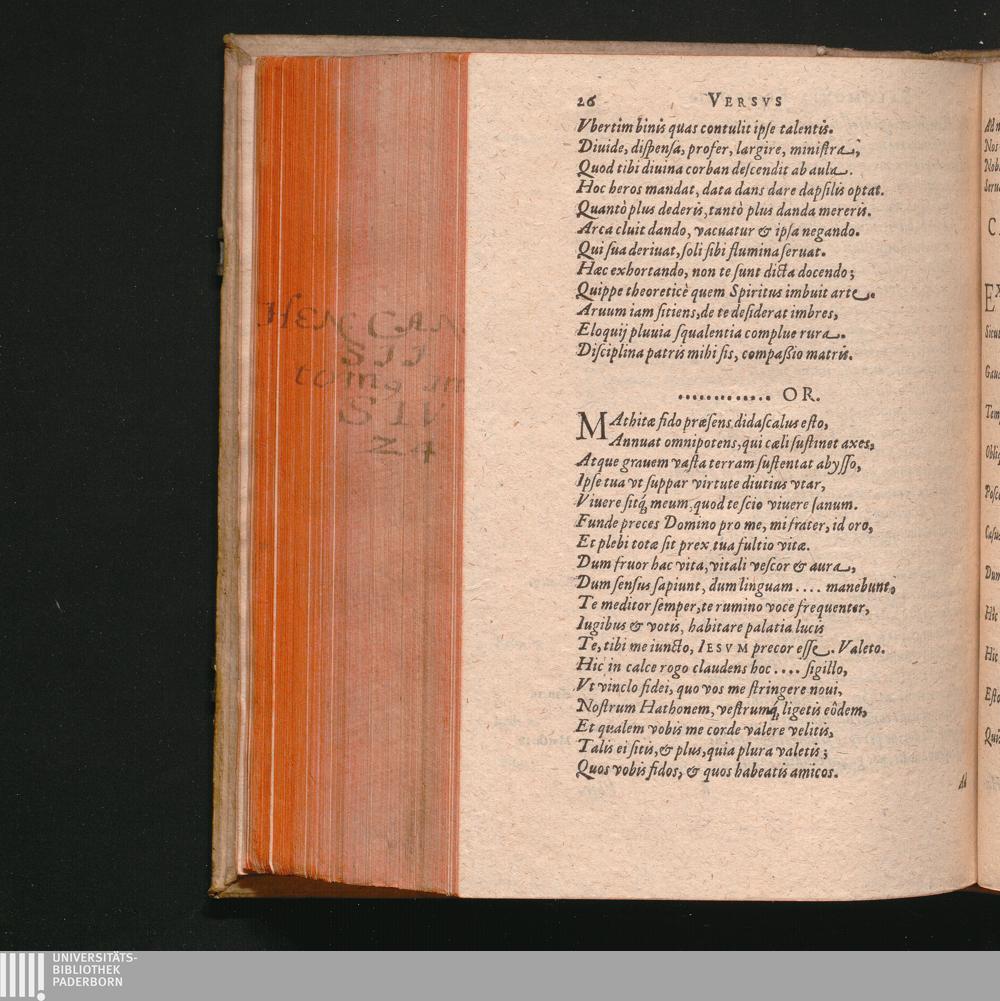 26 VERSVS
Vbertim binis quas contulit ipse talentis.
Diuide, dispensa, profer, largire, ministra,
Quod tibi diuina corban descendit ab aula.
Hoc heros mandat, data dans dare dapsilis optat.
Quantò plus dederis, tantò plus danda mereris.
Arca cluit dando, vacuatur & ipsa negando.
Qui sua deriuat, soli sibi flumina seruat.
Hæc exhortando, non te sunt dicta docendo;
Quippe theoreticè quem Spiritus imbuit arte.
Aruum iam sitiens, de te desiderat imbres,
Eloquij pluuia squalentia complue rura.
Disciplina patris mihi sis, compassio matris.
............ OR.
MAthitæ fido præsens didascalus esto,
Annuat omnipotens, qui cæli sustinet axes,
Atque grauem vasta terram sustentat abysso,
Ipse tua vt suppar virtute diutius vtar,
Viuere sitq́ meum, quod te scio viuere sanum.
Funde preces Domino pro me, mi frater, id oro,
Et plebi totæ sit prex tua fultio vitæ.
Dum fruor hac vita, vitali vescor & aura,
Dum sensus sapiunt, dum linguam .... manebunt,
Te meditor semper, te rumino voce frequenter,
Iugibus & votis, habitare palatia lucis
Te, tibi me iuncto, IESVM precor esse. Valeto.
Hic in calce rogo claudens hoc .... sigillo,
Vt vinclo fidei, quo vos me stringere noui,
Nostrum Hathonem, vestrumq́ ligetis eôdem,
Et qualem vobis me corde valere velitis,
Talis ei sitis, & plus, quia plura valetis;
Quos vobis fidos, & quos habeatis amicos.
Ad
HEN CAN
SII
tomg
SIV
24
UNIVERSITÄTS-
BIBLIOTHEK
PADERBORN